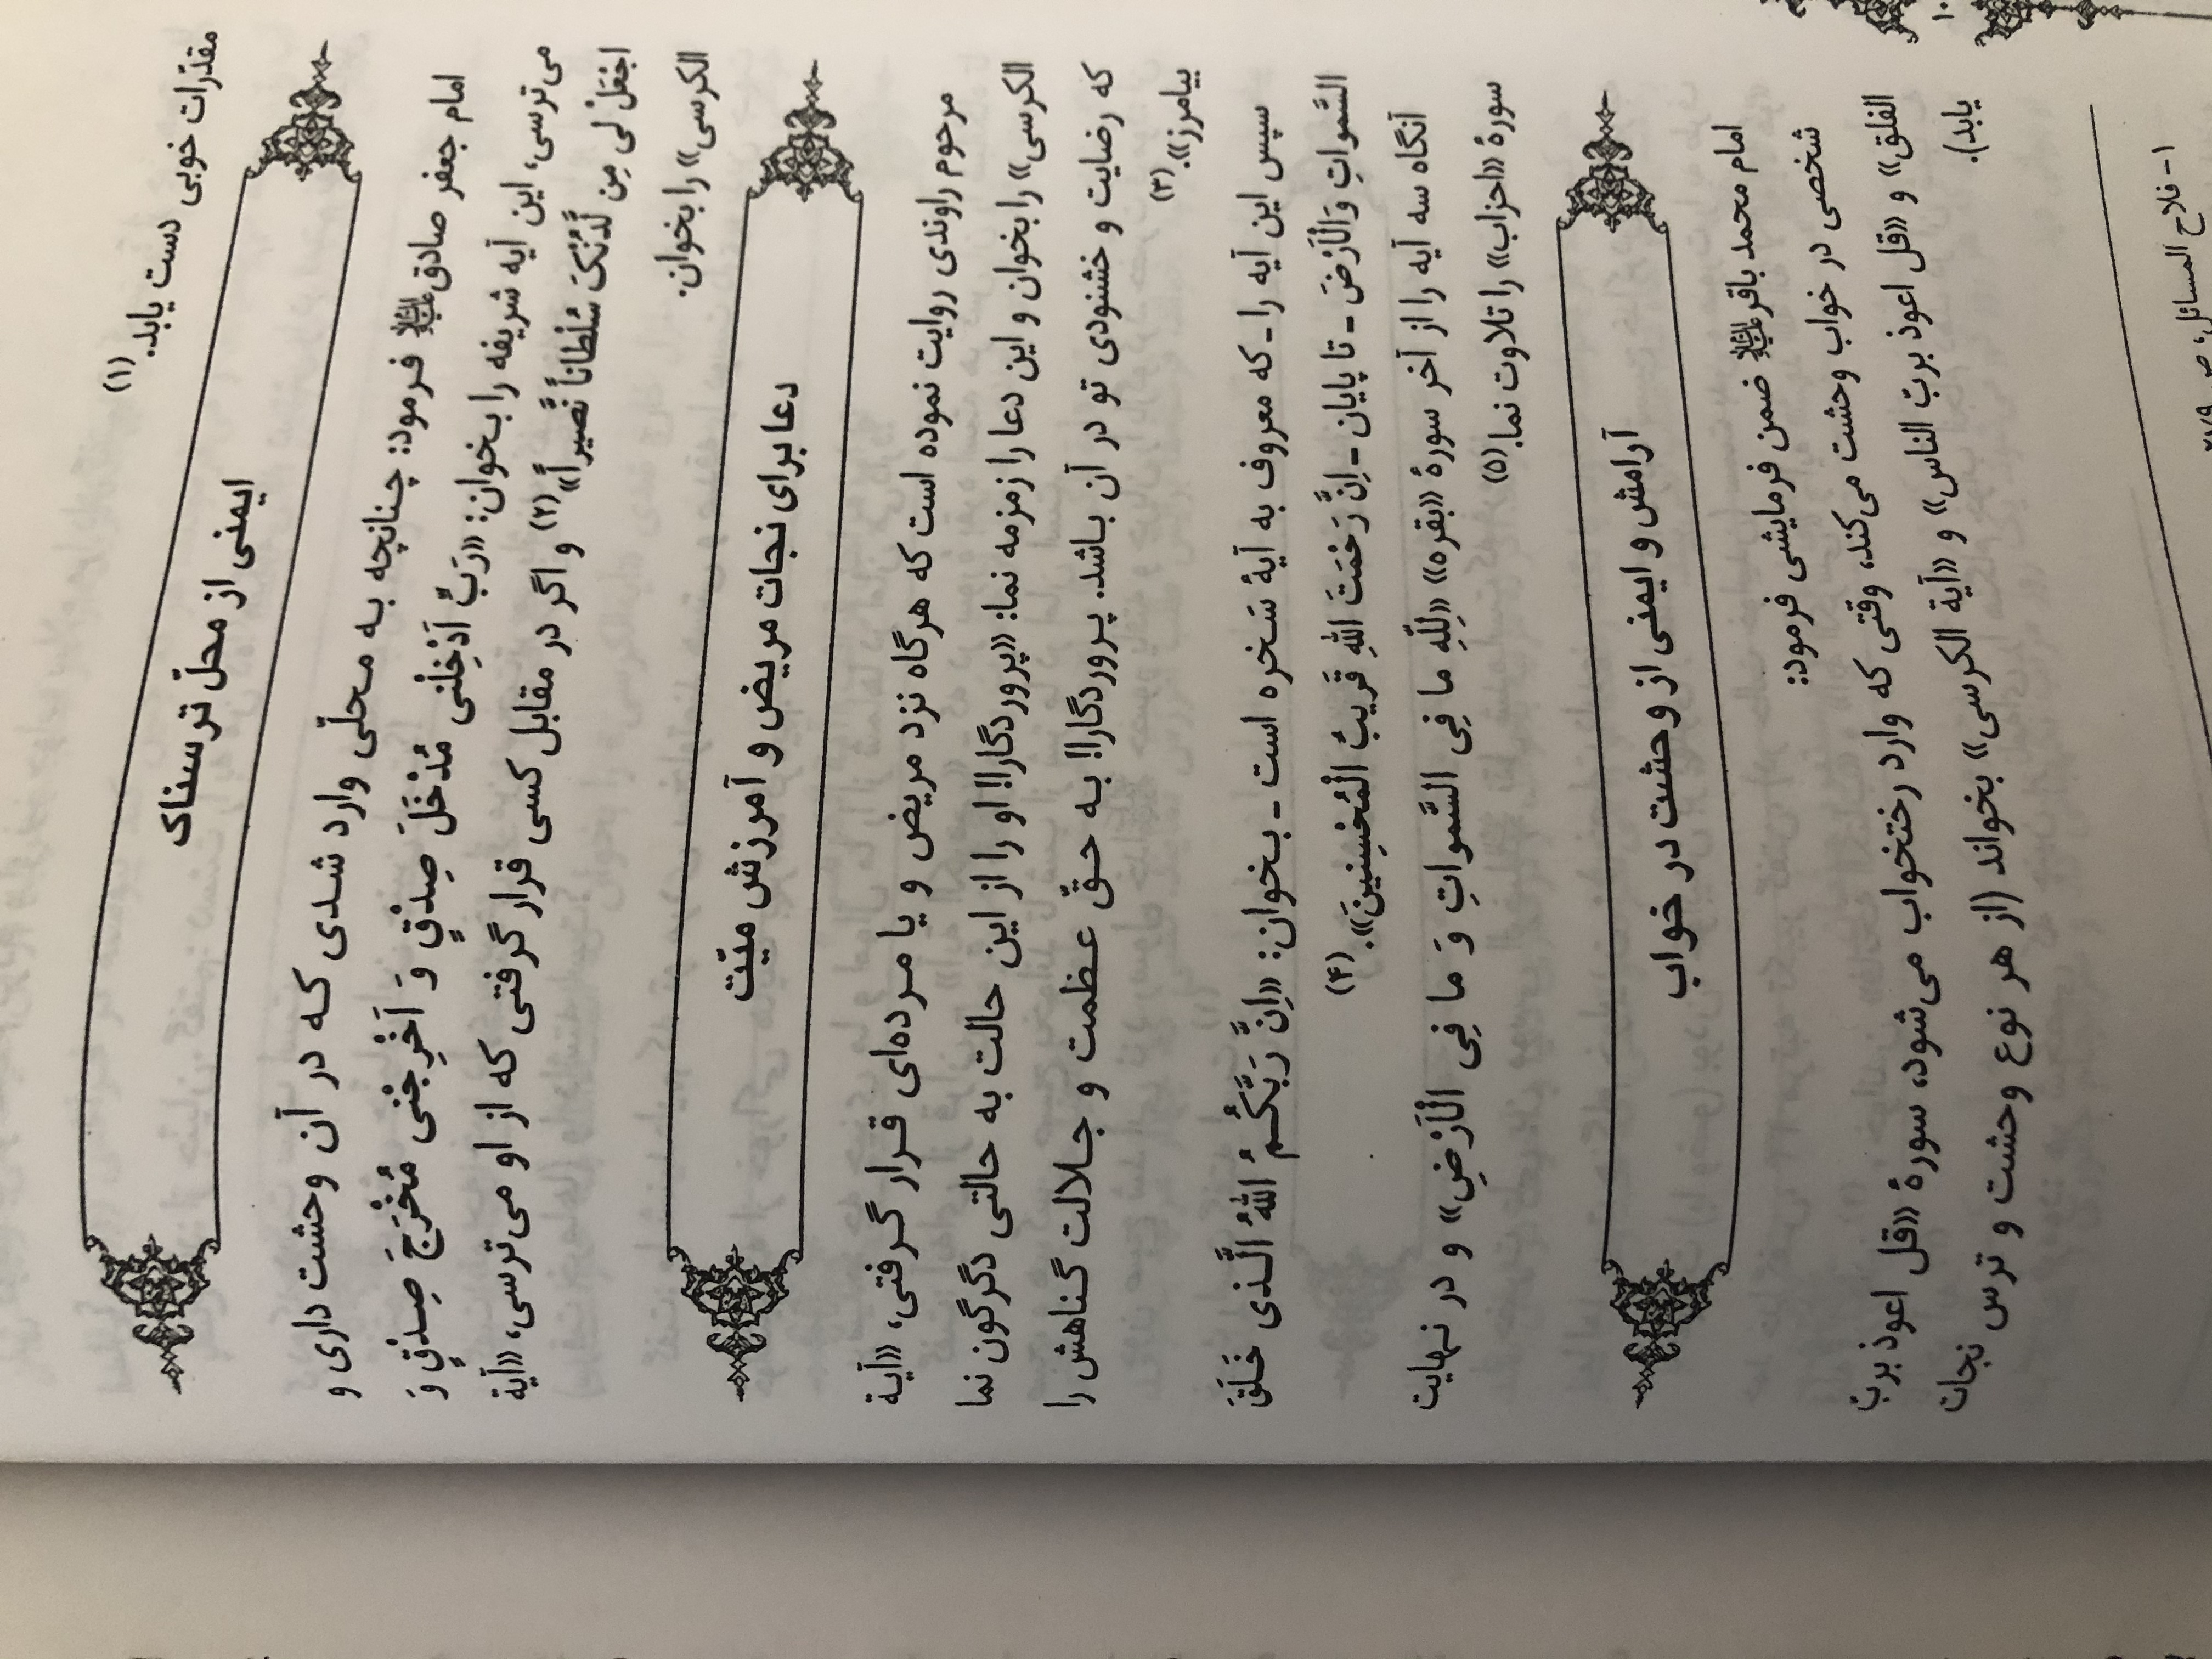 مقدّرات خوبی دست یابد.(۱)
ایمنی از محلّ ترسناک
امام جعفر صادق علیه السلام فرمود: چنانچه به محلّی وارد شدی که در آن وحشت داری و
می‌ترسی، این آیه شریفه را بخوان: «رَبِّ اَدْخِلْنی مُدْخَلَ صِدْقٍ وَ اَخْرِجْنی مُخْرَجَ صِدْقٍ وَ
اجْعَلْ لی مِن لَّدُنْکَ سُلْطاناً نَّصیراً»(۲) و اگر در مقابل کسی قرار گرفتی که از او می‌ترسی، «آیة
الکرسی» را بخوان.
دعا برای نجات مریض و آمرزش میّت
مرحوم راوندی روایت نموده است که هرگاه نزد مریض و یا مرده‌ای قرار گرفتی، «آیة
الکرسی» را بخوان و این دعا را زمزمه نما: «پروردگارا! او را از این حالت به حالتی دگرگون نما
که رضایت و خشنودی تو در آن باشد. پروردگارا! به حقّ عظمت و جلالت گناهش را
بیامرز».(۳)
سپس این آیه را ـ که معروف به آیهٔ سَخره است ـ بخوان: «اِنَّ رَبَّکُمُ اللهُ الَّذی خَلَقَ
السَّمواتِ وَالْاَرْضَ ـ تا پایان ـ اِنَّ رَحْمَتَ اللهِ قَریبٌ الْمُحْسِنینَ».(۴)
آنگاه سه آیه را از آخر سورهٔ «بقره» «لِلّهِ ما فِی السَّمواتِ وَ ما فِی الْاَرْضِ» و در نهایت
سورهٔ «احزاب» را تلاوت نما.(۵)
آرامش و ایمنی از وحشت در خواب
امام محمد باقر علیه السلام ضمن فرمایشی فرمود:
شخصی در خواب وحشت می‌کند، وقتی که وارد رختخواب می‌شود، سورهٔ «قل اعوذ بربّ
الفلق» و «قل اعوذ بربّ الناس» و «آیة الکرسی» بخواند (از هر نوع وحشت و ترس نجات
یابد).
۱- فلاح المسائل، ص